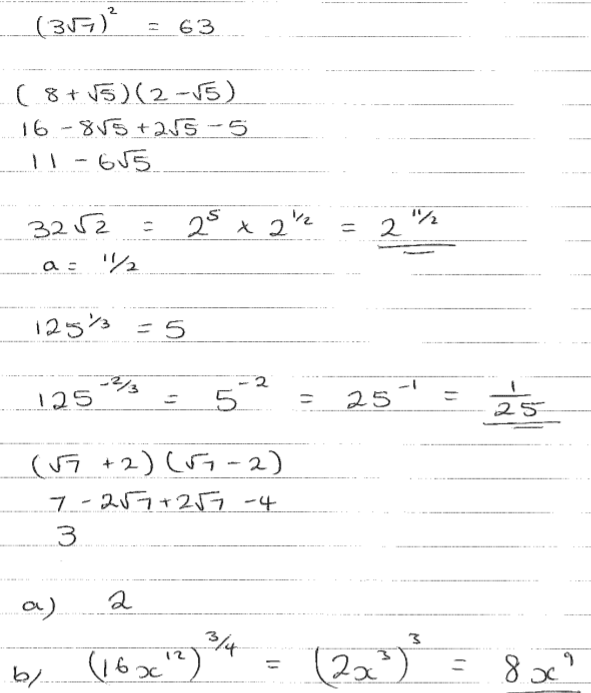 (3√7)² = 63
(8+√5)(2-√5)
16 - 8√5 + 2√5 - 5
11 - 6√5
32√2 = 2⁵ × 2^1/2 = 2^11/2
a = 11/2
125^1/3 = 5
125^-2/3 = 5^-2 = 25^-1 = 1/25
(√7 + 2)(√7 - 2)
7 - 2√7 + 2√7 - 4
3
a) 2
b/ (16x¹²)^3/4 = (2x³)³ = 8x⁹